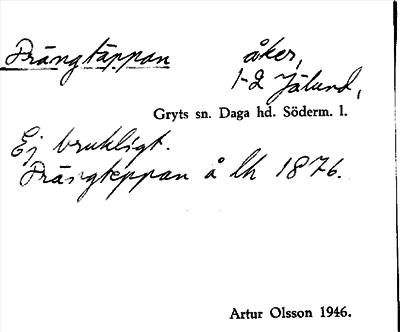 Prängtäppan åker,
1-2 Jälund,
Gryts sn. Daga hd. Söderm. l.
Ej brukligt.
Prängteppan å lk 1876.
Artur Olsson 1946.